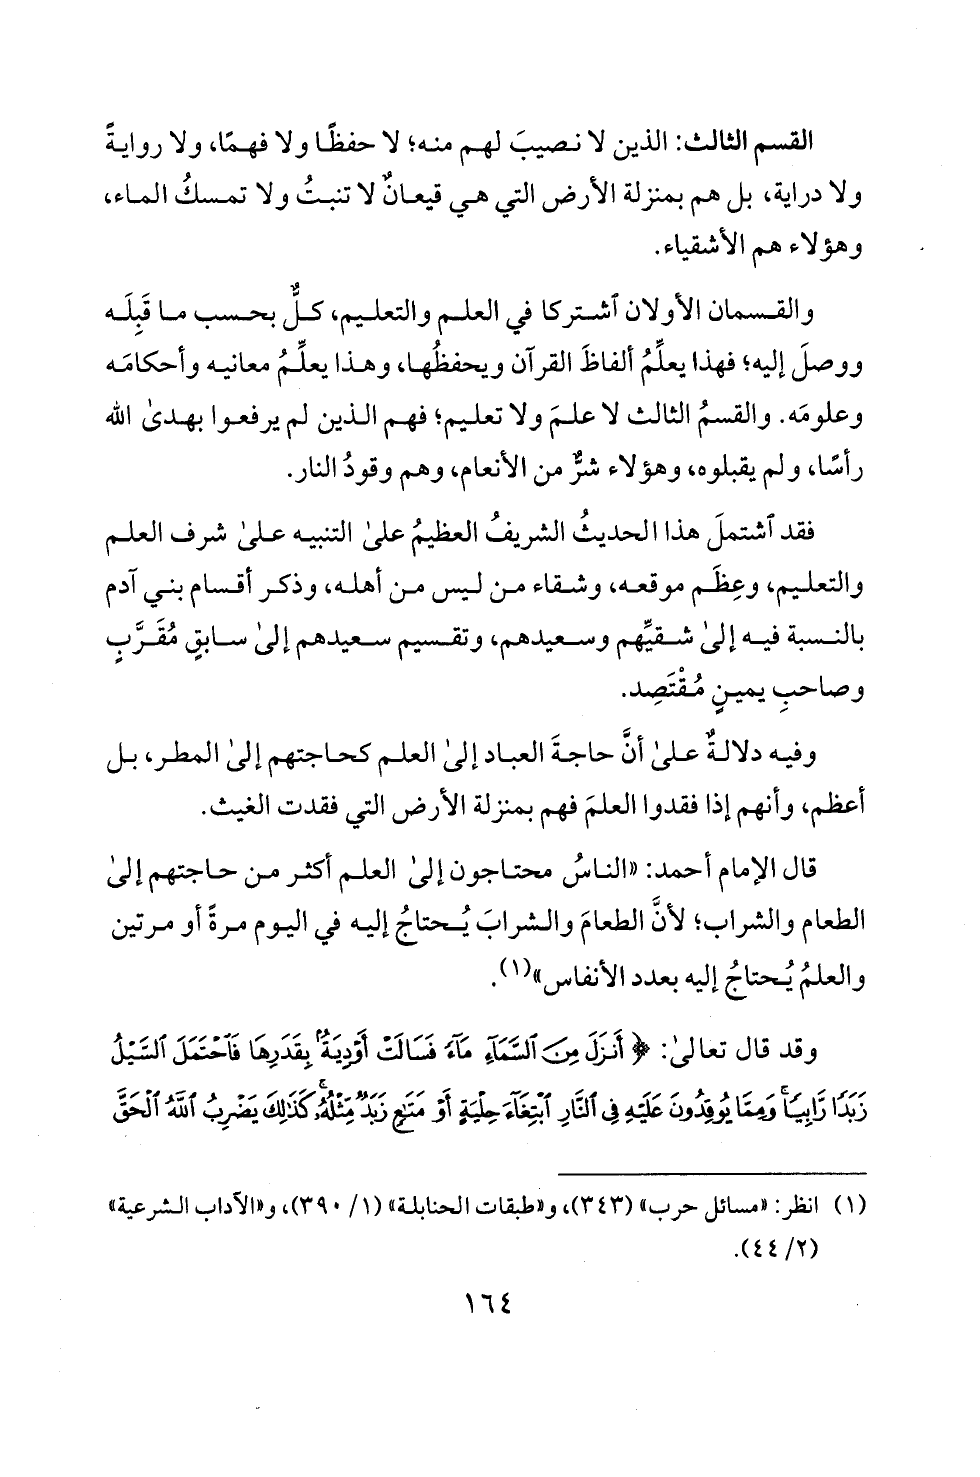 القسم الثالث: الذين لا نصيبَ لهم منه؛ لا حفظًا ولا فهمًا، ولا روايةً
ولا دراية، بل هم بمنزلة الأرض التي هي قيعانٌ لا تنبتُ ولا تمسكُ الماء،
وهؤلاء هم الأشقياء.
والقسمان الأولان ٱشتركا في العلم والتعليم، كلٌّ بحسب ما قَبِلَه
ووصلَ إليه؛ فهذا يعلِّمُ ألفاظَ القرآن ويحفظُها، وهذا يعلِّمُ معانيه وأحكامَه
وعلومَه. والقسمُ الثالث لا علمَ ولا تعليم؛ فهم الذين لم يرفعوا بهدىٰ الله
رأسًا، ولم يقبلوه، وهؤلاء شرٌّ من الأنعام، وهم وقودُ النار.
فقد ٱشتملَ هذا الحديثُ الشريفُ العظيمُ علىٰ التنبيه علىٰ شرف العلم
والتعليم، وعِظَم موقعه، وشقاء من ليس من أهله، وذكر أقسام بني آدم
بالنسبة فيه إلىٰ شقيِّهم وسعيدهم، وتقسيم سعيدهم إلىٰ سابقٍ مُقَرَّبٍ
وصاحبِ يمينٍ مُقْتَصِد.
وفيه دلالةٌ علىٰ أنَّ حاجةَ العباد إلىٰ العلم كحاجتهم إلىٰ المطر، بل
أعظم، وأنهم إذا فقدوا العلمَ فهم بمنزلة الأرض التي فقدت الغيث.
قال الإمام أحمد: «الناسُ محتاجون إلىٰ العلم أكثر من حاجتهم إلىٰ
الطعام والشراب؛ لأنَّ الطعامَ والشرابَ يُحتاجُ إليه في اليوم مرةً أو مرتين
والعلمُ يُحتاجُ إليه بعدد الأنفاس»(١).
وقد قال تعالىٰ: ﴿أَنزَلَ مِنَ ٱلسَّمَآءِ مَآءً فَسَالَتْ أَوْدِيَةٌۢ بِقَدَرِهَا فَٱحْتَمَلَ ٱلسَّيْلُ
زَبَدًا رَّابِيًا ۚ وَمِمَّا يُوقِدُونَ عَلَيْهِ فِى ٱلنَّارِ ٱبْتِغَآءَ حِلْيَةٍ أَوْ مَتَٰعٍ زَبَدٌ مِّثْلُهُۥ ۚ كَذَٰلِكَ يَضْرِبُ ٱللَّهُ ٱلْحَقَّ
(١) انظر: «مسائل حرب» (٣٤٣)، و«طبقات الحنابلة» (١/ ٣٩٠)، و«الآداب الشرعية»
(٢/ ٤٤).
١٦٤